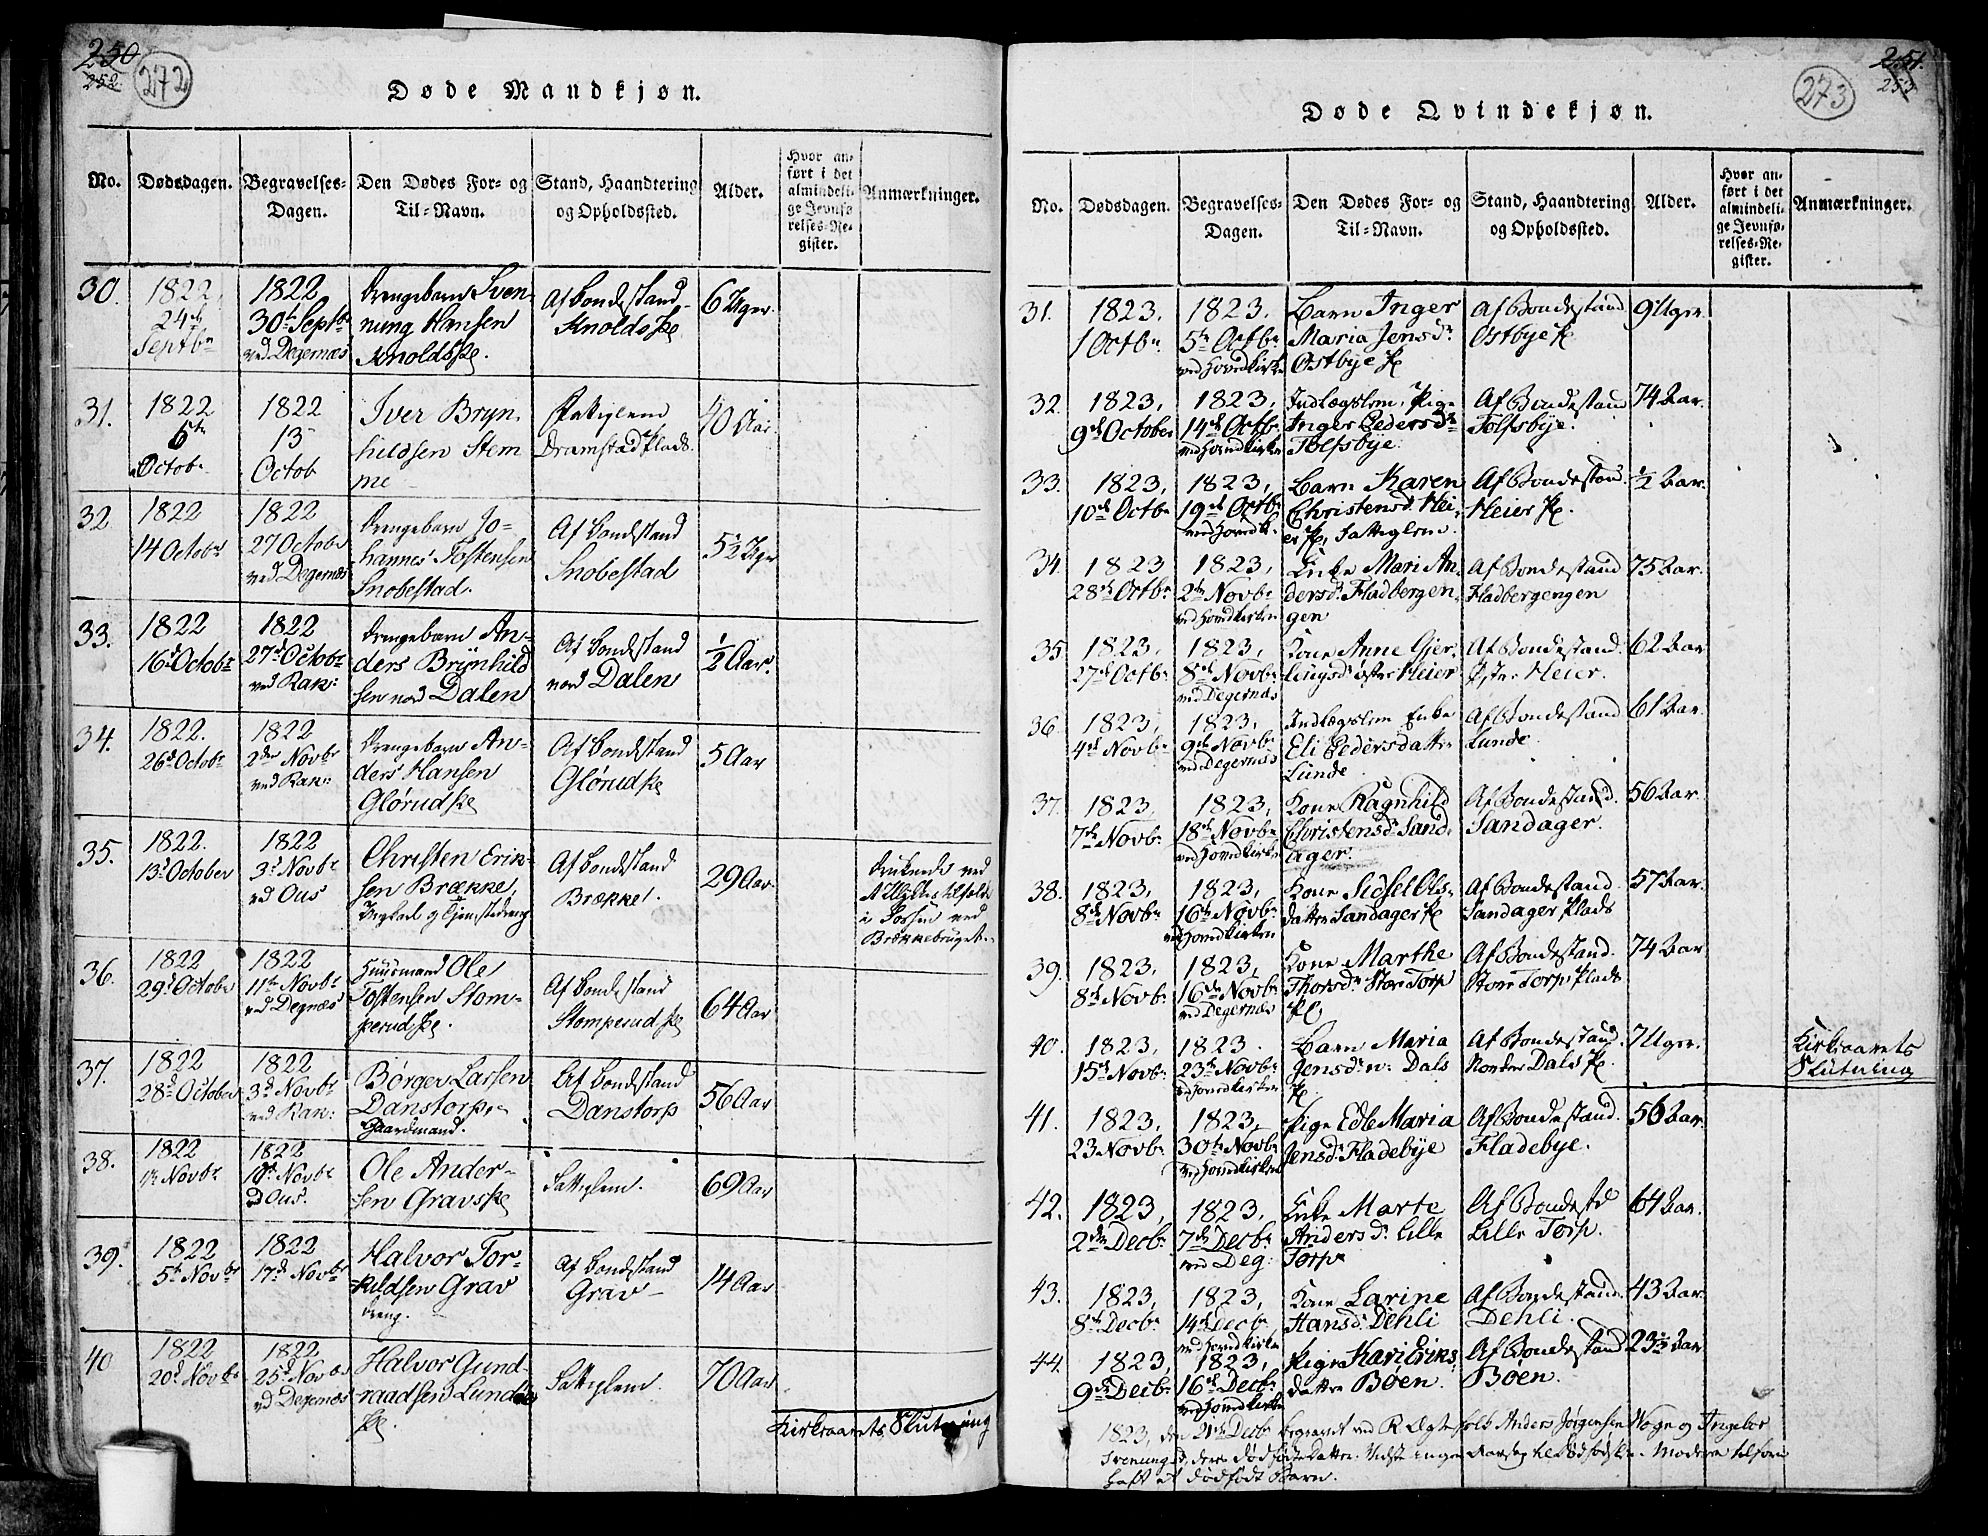 250
252
272
Døde Mandkjøn.
No. Dødsdagen. Begravelses-Dagen. Den Dødes For- og Til-Navn. Stand, Haandtering og Opholdssted. Alder. Hvor anført i det almindelige Jevnførelses-Register. Anmærkninger.
30. 1822 24de Septbr 1822 30te Septbr ved Degernæs Drengebarn Svennung Hansen KnoldsPl. Af Bondestand Knolds Pl 6 Uger
31. 1822 6te Octobr 1822 13 Octob Iver Brynhildsen Stemme Fattiglem Dramstad Plads 70 Aar
32. 1822 14 Octobr 1822 27 Octobr ved Degernæs Drengebarn Johannes Tostensen Snobestad. Af Bondestand Snobestad 5½ Uger
33. 1822 16d Octobr 1822 27d Octobr ved Rak: Drengebarn Anders Brynhildsen nord Dalen Af Bondestand nord Dalen ½ Aar.
34. 1822. 26d Octobr 1822 2den Novbr ved Rak: Drengebarn Anders Hansen Glørud Pl Af Bondestand Glørud Pl 5 Aar
35. 1822. 13d October 1822 3d Novbr ved Ous Christen Eriksen Brække, Ungkarl og Af Bondestand Brække. 29 Aar druknede ved i Fossen ved Brækkebruget
36. 1822 29d Octobr 1822 11te Novbr ved Degnæs Huusmand Ole Tostensen Stomperud Pl. Af Bondestand Stomperud Pl 64 Aar
37. 1822 28d October 1822 3d Novbr ved Rak: Børger Larsen Danstorp Gaardmand. Af Bondestand Danstorp 56 Aar
38. 1822 1te Novbr 1822 10d Novbr Ous. Ole Andersen Gravs Pl Fattiglem. 69 Aar
39. 1822 5te Novbr 1822 17d Novbr Halvor Torkildsen Grav dreng. Af Bondestand Grav 14 Aar
40 1822 20d Novbr 1822 25d Novbr ved Degernæs Halvor Gundraadsen Lunde Pl. Fattiglem. 70 Aar
Kirkeaarets Slutning
251.
253
273
Døde Qvindekjøn.
No. Dødsdagen. Begravelses-Dagen. Den Dødes For- og Til-Navn. Stand, Haandtering og Opholdssted. Alder. Hvor anført i det almindelige Jevnførelses-Register. Anmærkninger.
31. 1823, 1 Octbr. 1823. 5te Octbr ved Hovedkirke Barn Inger Maria Jensdr Østbye Pl Af Bondestand Østbye Pl 9 Uger.
32. 1823, 9de October 1823, 14de Octbr ved Hovedkirken Indlægslem, Pige Inger Pedersdr Tolfsbye. Af Bondestand Tolfsbye. 74 Aar.
33. 1823, 10de Octbr 1823, 19de Octbr ved Hovedk. Barn Karen Christensd Heier Pl, Fattiglem. Af Bondestand. Heier Pl. ½ Aar.
34. 1823 28de Octbr 1823, 2den Novbr ved Hovedkirken Enke Mari Andersd. Fladbergengen Af Bondestand Fladbergengen 75 Aar.
35 1823. 27de Octbr. 1823, 8de Novbr. ved Degernæs Kone Anne Gjerlaugsd. øster Heier Af Bondestand. Øster Heier. 62 Aar
36 1823, 4de Novbr. 1823. 9de Novbr. ved Degernæs Indlægslem Enke Eli Pedersdatter Lunde Af Bondestand Lunde. 61 Aar.
37. 1823, 7de Novbr. 1823, 18de Novbr ved Hovedkirken Kone Ragnhild Christensdr Sandager. Af Bondestand. Sandager. 56 Aar.
38. 1823, 8de Novbr 1823. 16de Novbr ved Hovedkirken Kone Sidsel Olsdatter Sandager Pl Af Bondestand. Sandager Plads 57 Aar.
39. 1823, 8de Novbr 1823, 16de Novbr ved Degernæs Kone Marthe Thorsdr Store Torp Pl Af Bondestand. Store Torp Plads 74 Aar
40. 1823, 15de Novbr. 1823. 23de Novbr. ved Hovedkirken Barn Maria Jensdr n: Dals Pl Af Bondestand. Nordre Dals Pl. 7 Uger. Kirkeaarets Slutning
41. 1823. 23 Novbr 1823. 30te Novbr ved Hovedkirken Pige Edle Maria Jensd: Fladebye Af Bondestand. Fladebye. 56 Aar.
42. 1823, 2den Decbr. 1823. 7de Decbr. ved Deg: Enke Marte Andersd: Lille Torp Af Bondestd Lille Torp. 64 Aar.
43. 1823, 8de Decbr. 1823. 14de Decbr. ved Hovedkirken Kone Larine Hansd: Dehli Af Bondestand. Dehli. 43 Aar.
44. 1823, 9de Decbr. 1823, 16de Decbr. ved Hovedkirken Pige Kari Eriksdatter Bøen. Af Bondestand Bøen. 23½ Aar
1823, den 21de Decbr begravet ved R. Ægtefolk Anders Jørgensen og Ingebor
deres dødfødte Datter. Vidste ingen Aarsag til Dødfødselen. Moderen tilforn
haft et dødfødt Barn.